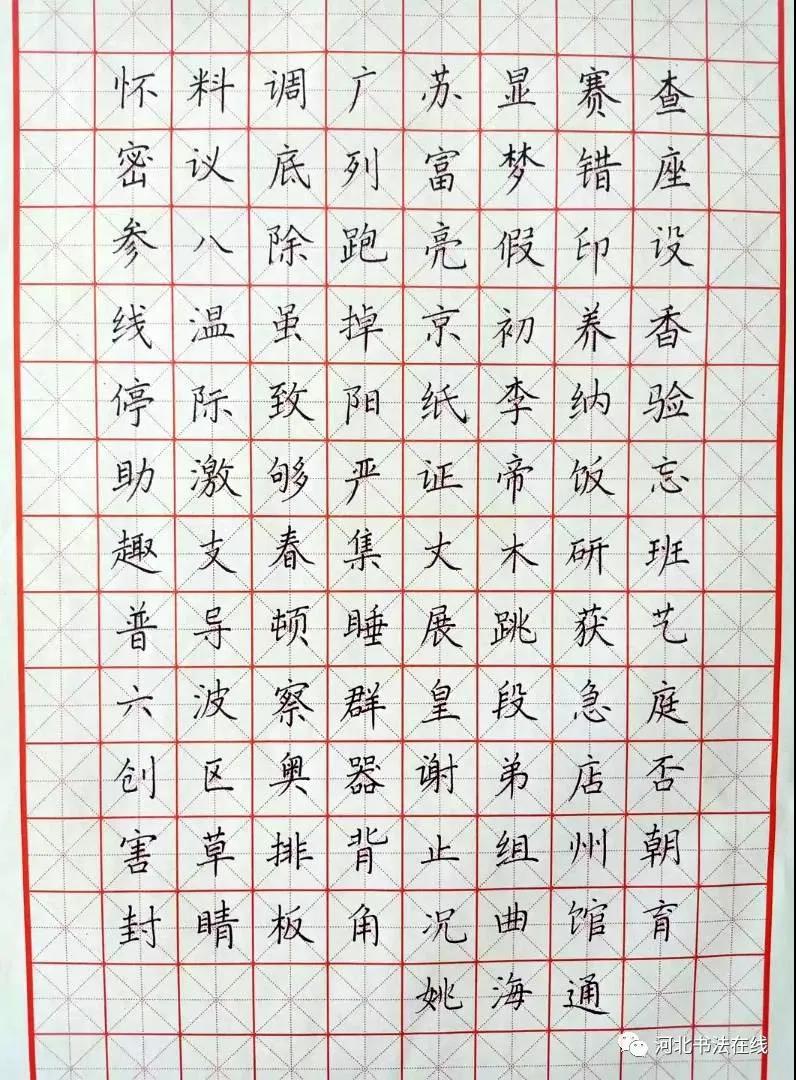 怀料调广苏显赛查
密议底列富梦错座
参八除跑亮假印设
线温虽掉京初养香
停际致阳纸李纳验
助激够严证帝饭忘
趣支春集丈木研班
普导顿睡展跳获艺
六波察群皇段急庭
创区奥器谢弟店否
害草排背止组州朝
封睛板角况曲馆育
姚海通
河北书法在线